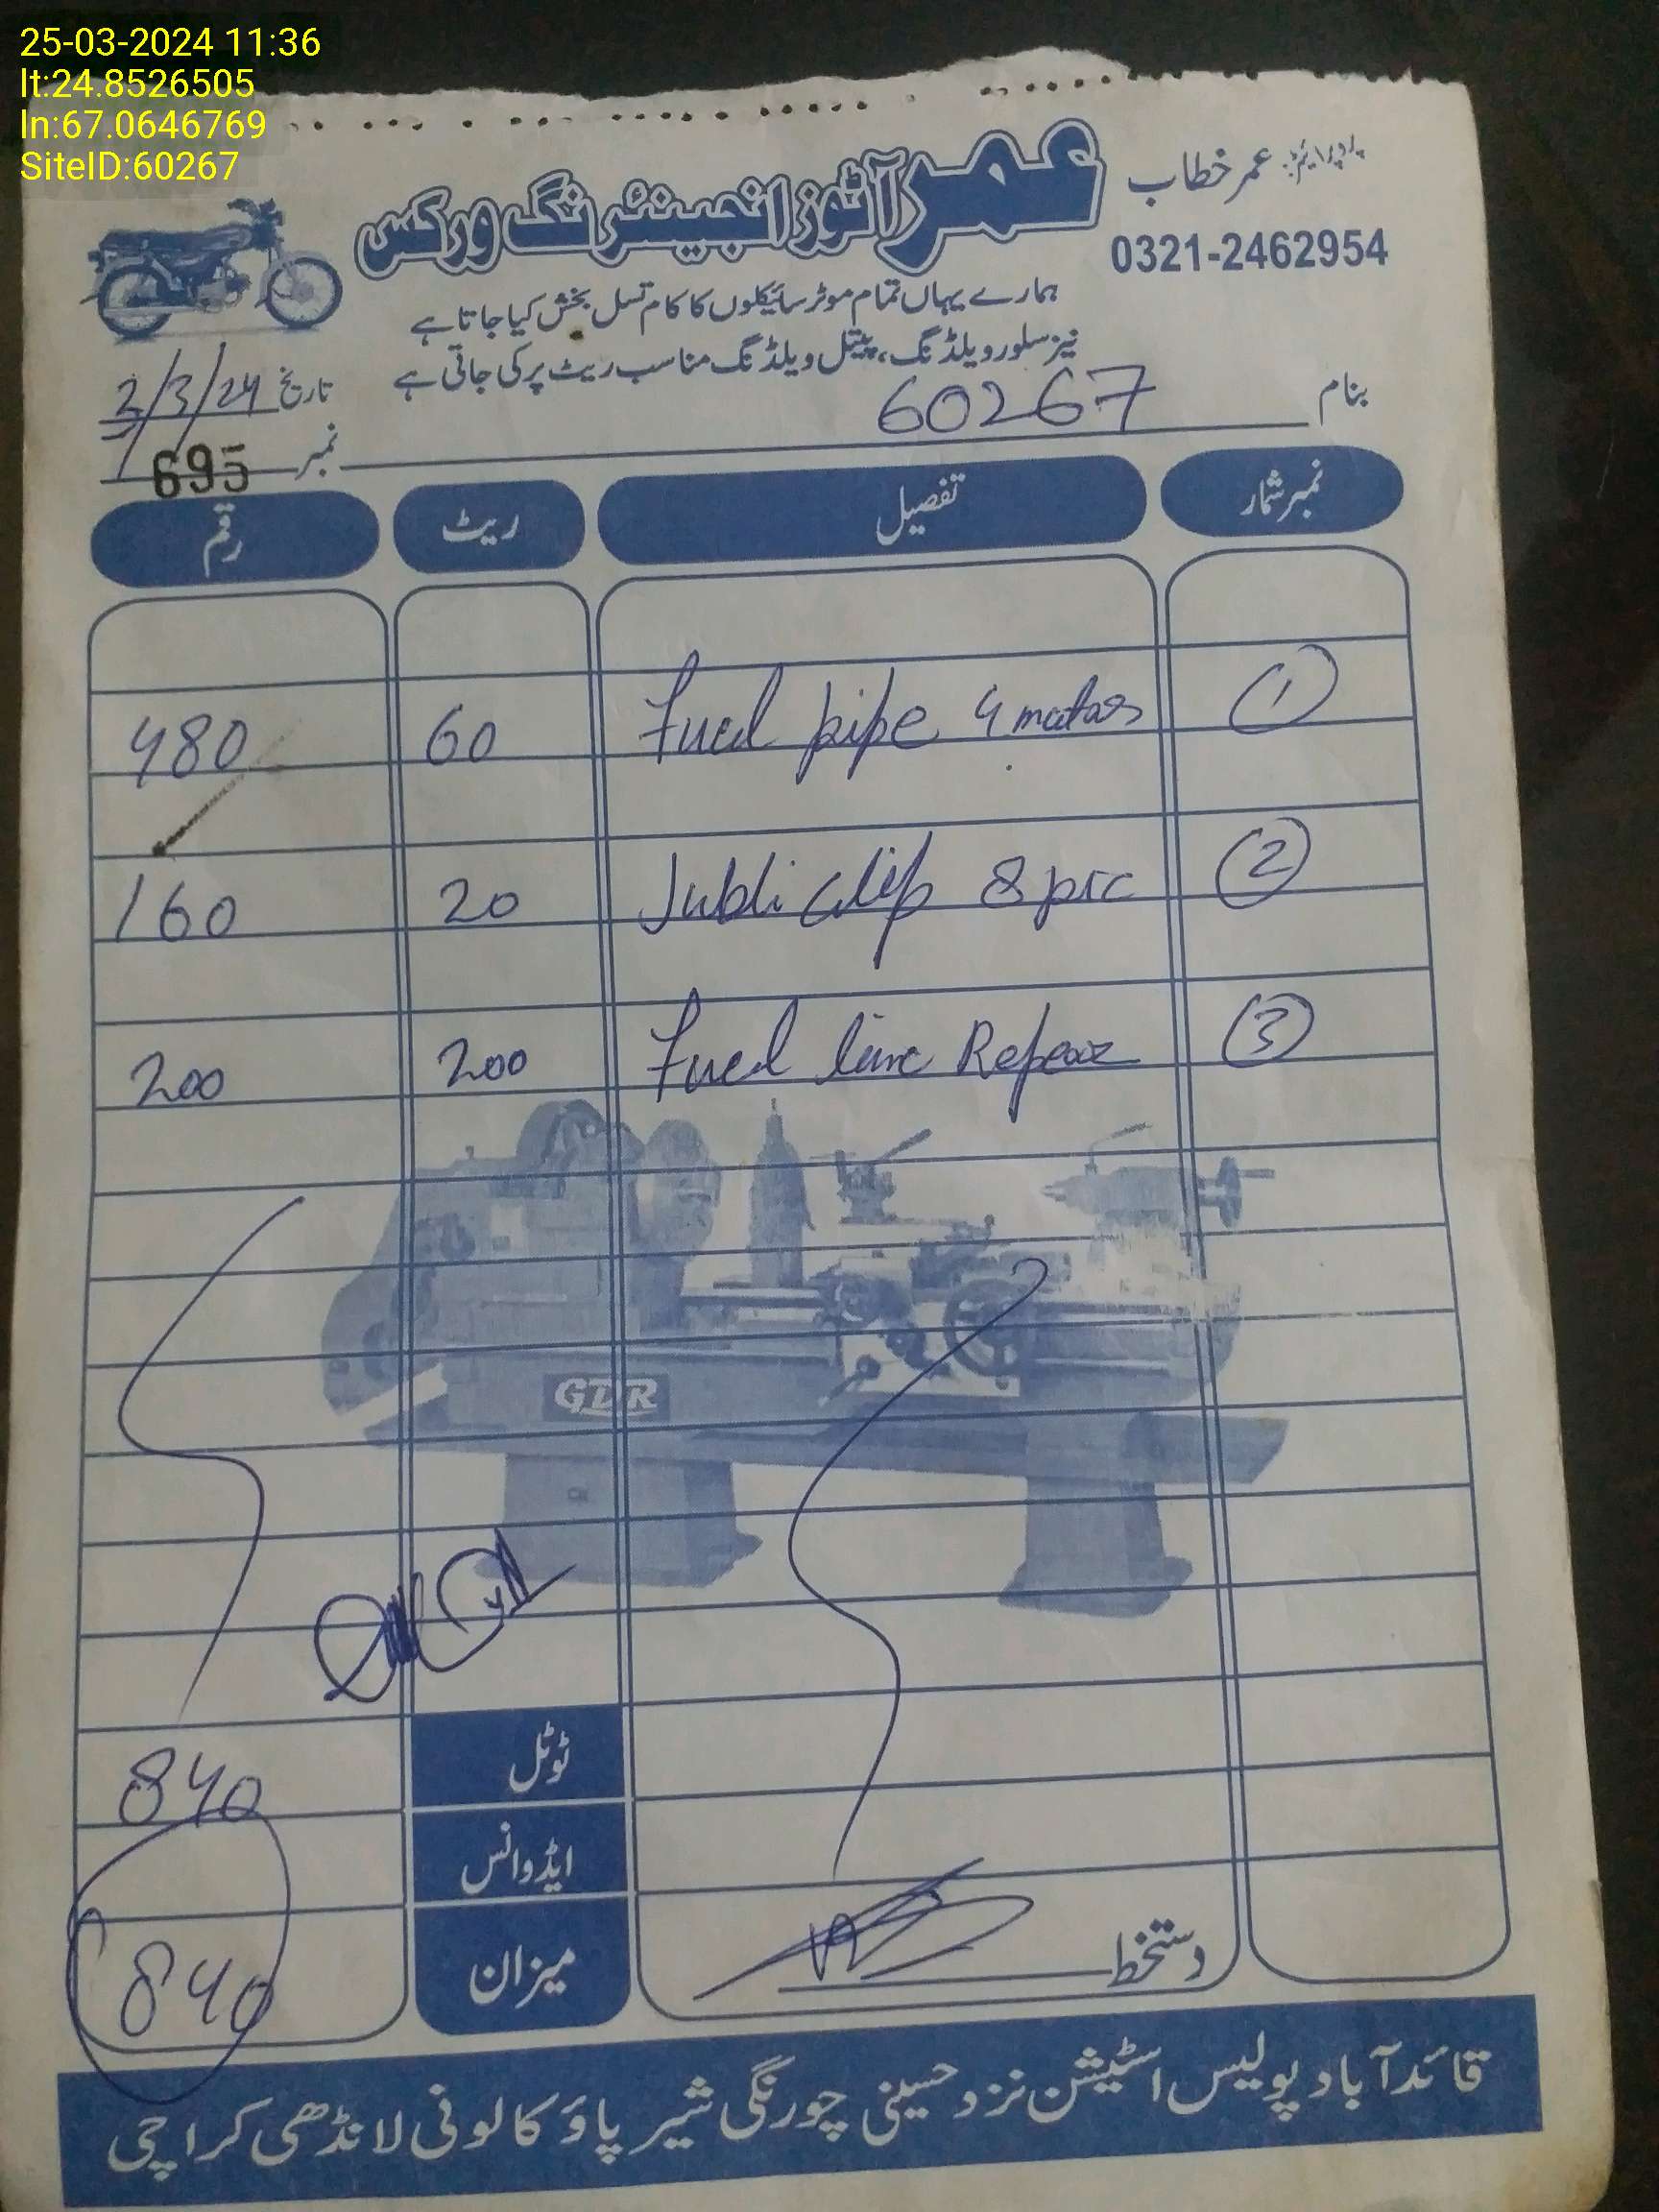 25-03-2024 11:36
lt:24.8526505
ln:67.0646769
SiteID:60267
پروپرائیٹر: عمر خطاب
0321-2462954
عمر آٹوز انجینئرنگ ورکس
ہمارے یہاں تمام موٹر سائیکلوں کا کام تسلی بخش کیا جاتا ہے
نیز سلور ویلڈنگ، پیتل ویلڈنگ مناسب ریٹ پر کی جاتی ہے
بنام 60267
تاریخ 2/3/24
نمبر 695
نمبر شمار تفصیل ریٹ رقم
1 Fuel pipe 4 matar 60 480
2 Jubli clip 8 pic 20 160
3 Fuel line Repear 200 200
GDR
ٹوٹل 840
ایڈوانس
میزان 840
دستخط
قائد آباد پولیس اسٹیشن نزد حسینی چورنگی شیر پاؤ کالونی لانڈھی کراچی